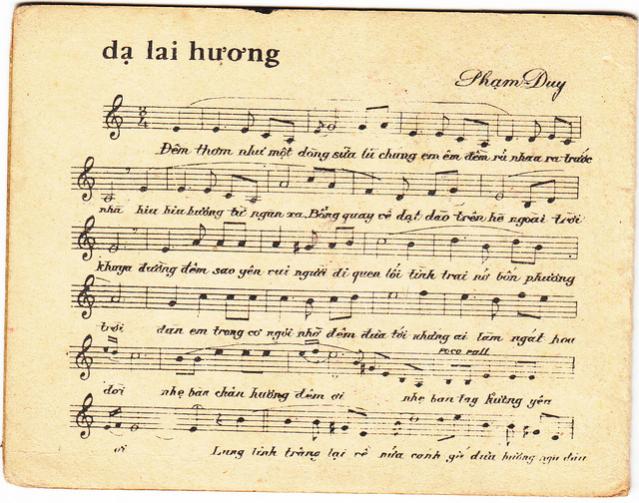 dạ lai hương
Phạm Duy
3 4
Đêm thơm như một dòng sữa lũ chúng em êm đềm rủ nhau ra trước
nhà hiu hiu hương tự ngàn xa Bỗng quay về dạt dào trên hè ngoài trời
khuya đường đêm sao yên vui người đi quen lối tình trai nở bốn phương
trời đàn em trong cơ ngồi nhớ đêm đưa tới những ai làm ngát hoa
poco rall
đời nhẹ bàn chân hương đêm ơi nhẹ bàn tay
ơi Lung linh trăng lại về nửa canh gió đưa hương